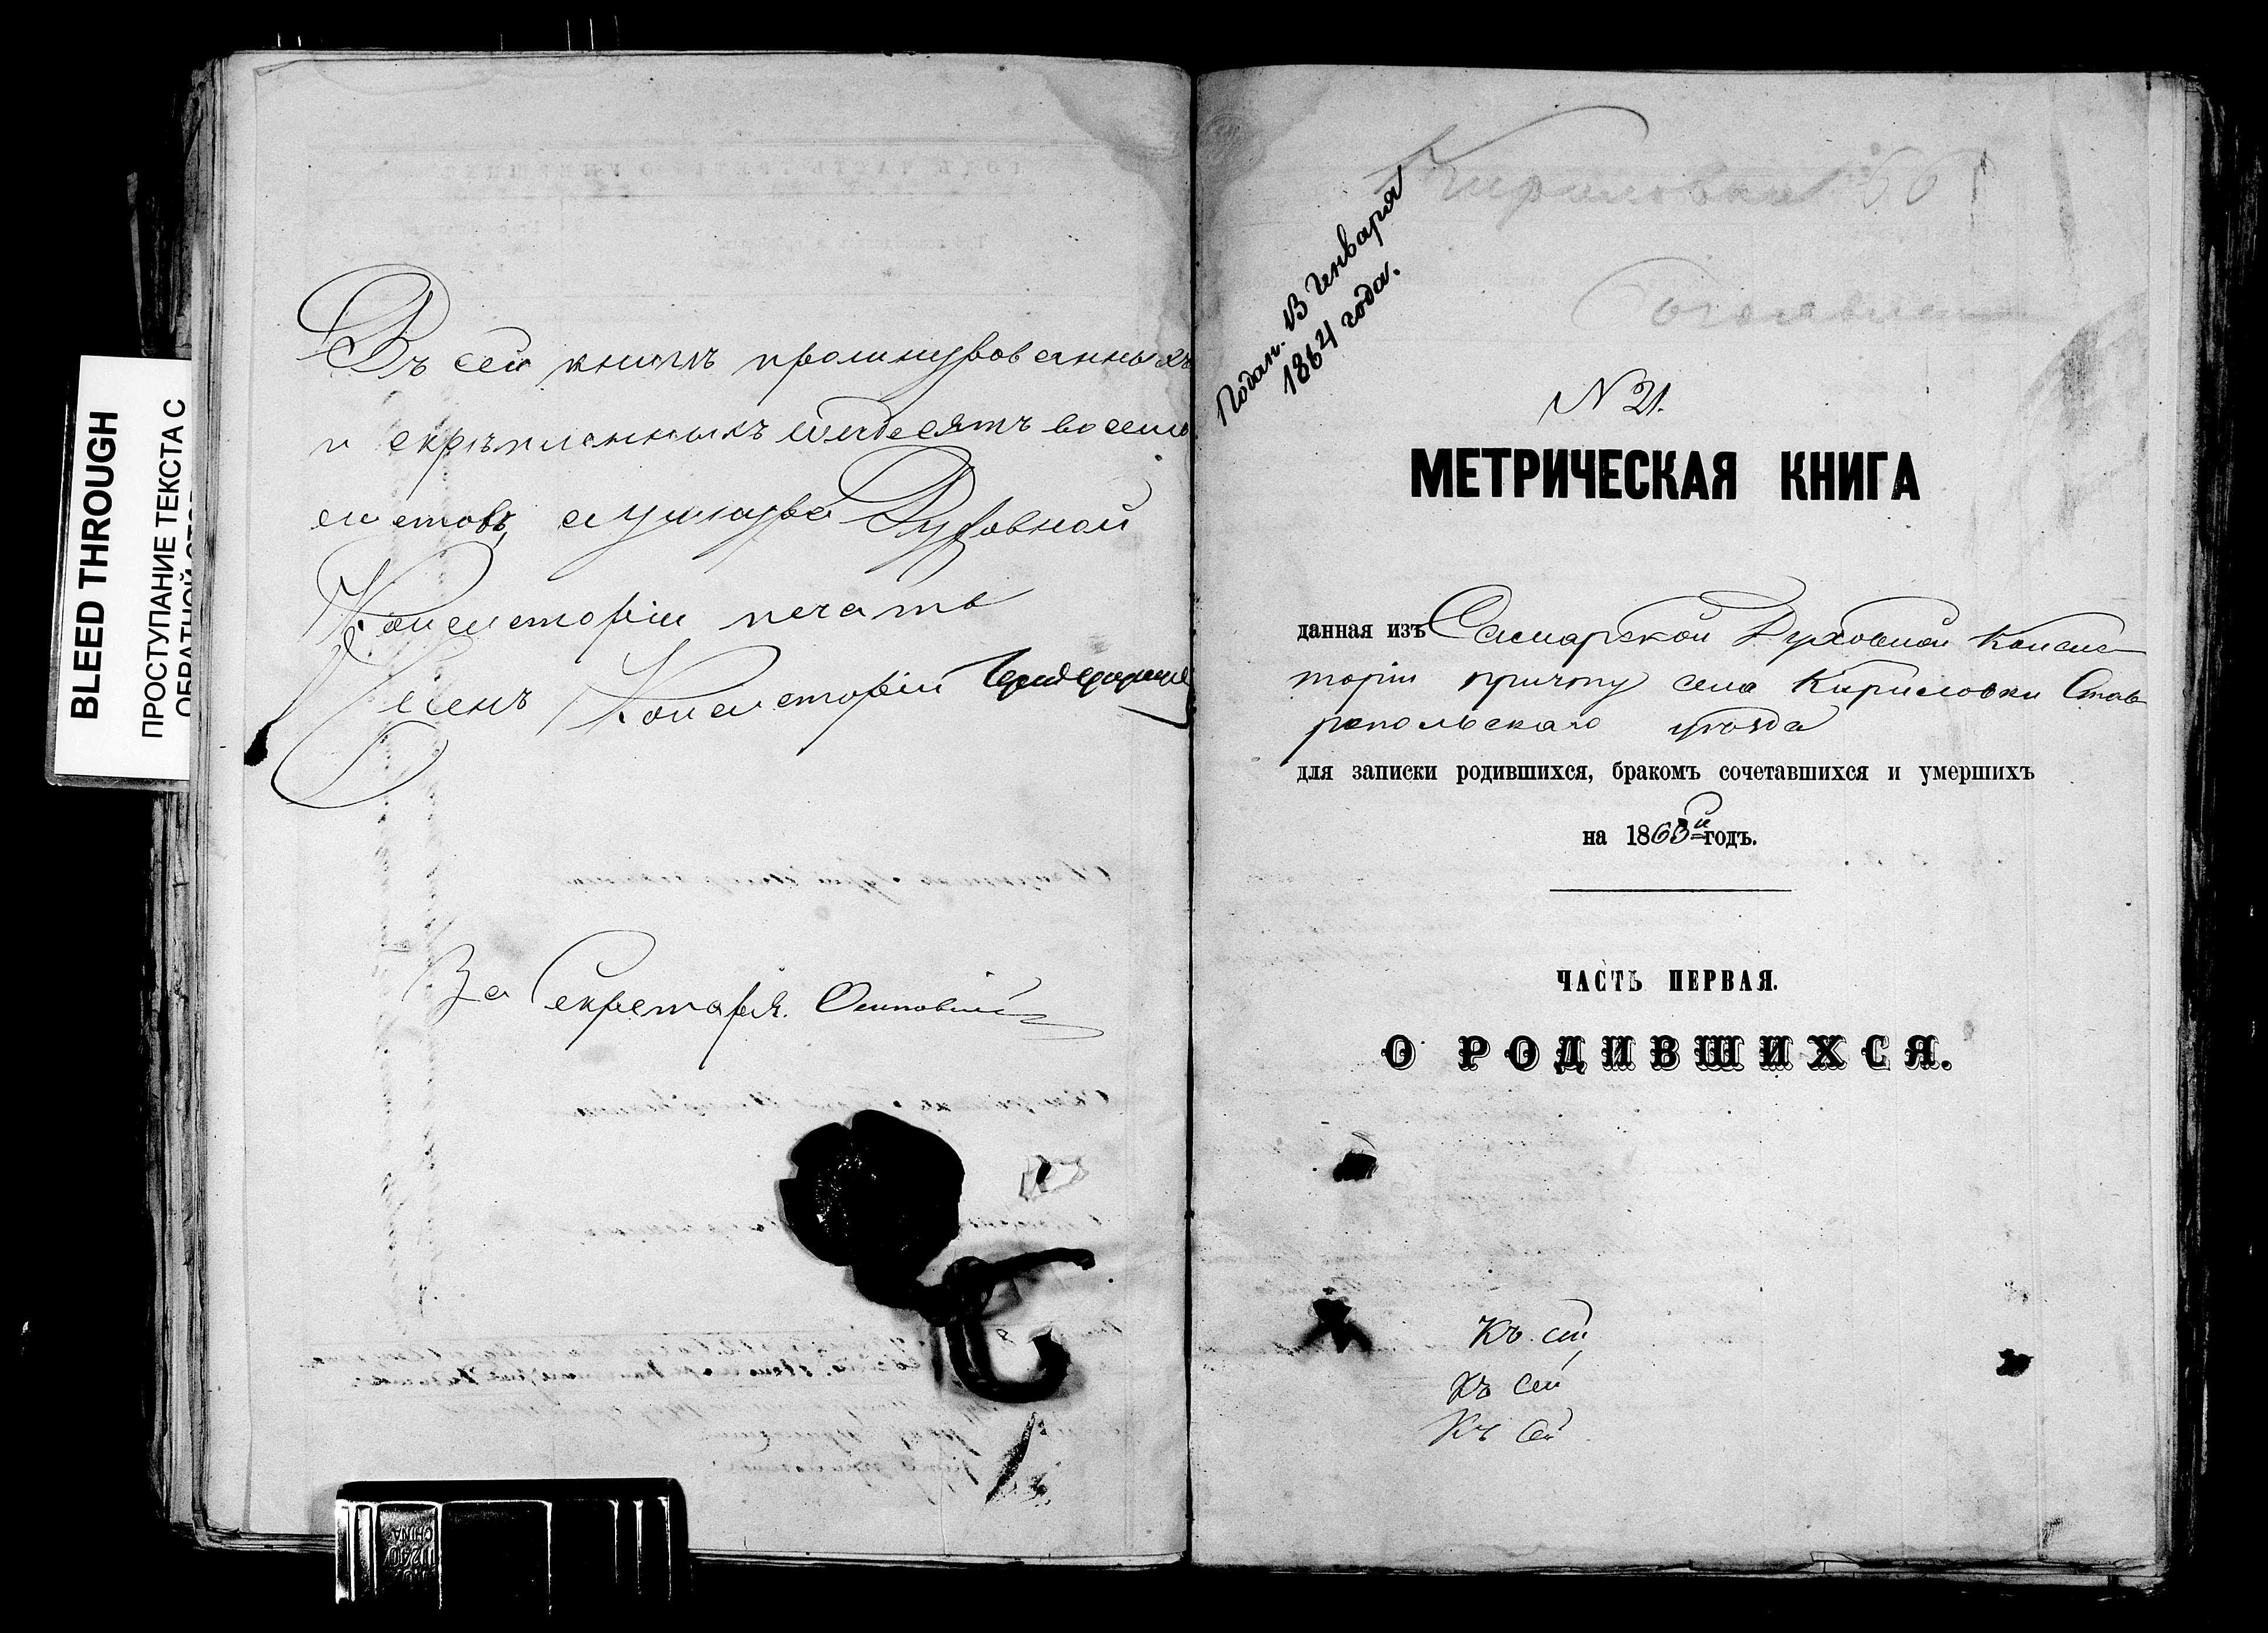 BLEED THROUGH
ПРОСТУПАНИЕ ТЕКСТА С
Въ сей книгѣ прошнурованныхъ
и скрѣпленныхъ шесдесятъ восемь
листовъ, а у шнура Духовной
Консисторіи печать
Членъ Консисторіи
За Секретаря.
11240
CHINA
Кириловки 66
Подан. 13 Генваря
1864 года.
N 21.
МЕТРИЧЕСКАЯ КНИГА
данная изъ Самарской Духовной Консис
торіи причту села Кириловки Став
ропольскаго уѣзда
для записки родившихся, бракомъ сочетавшихся и умершихъ
на 1863й годъ.
ЧАСТЬ ПЕРВАЯ.
О РОДИВШИХСЯ.
Къ сей
Къ сей
Къ сей